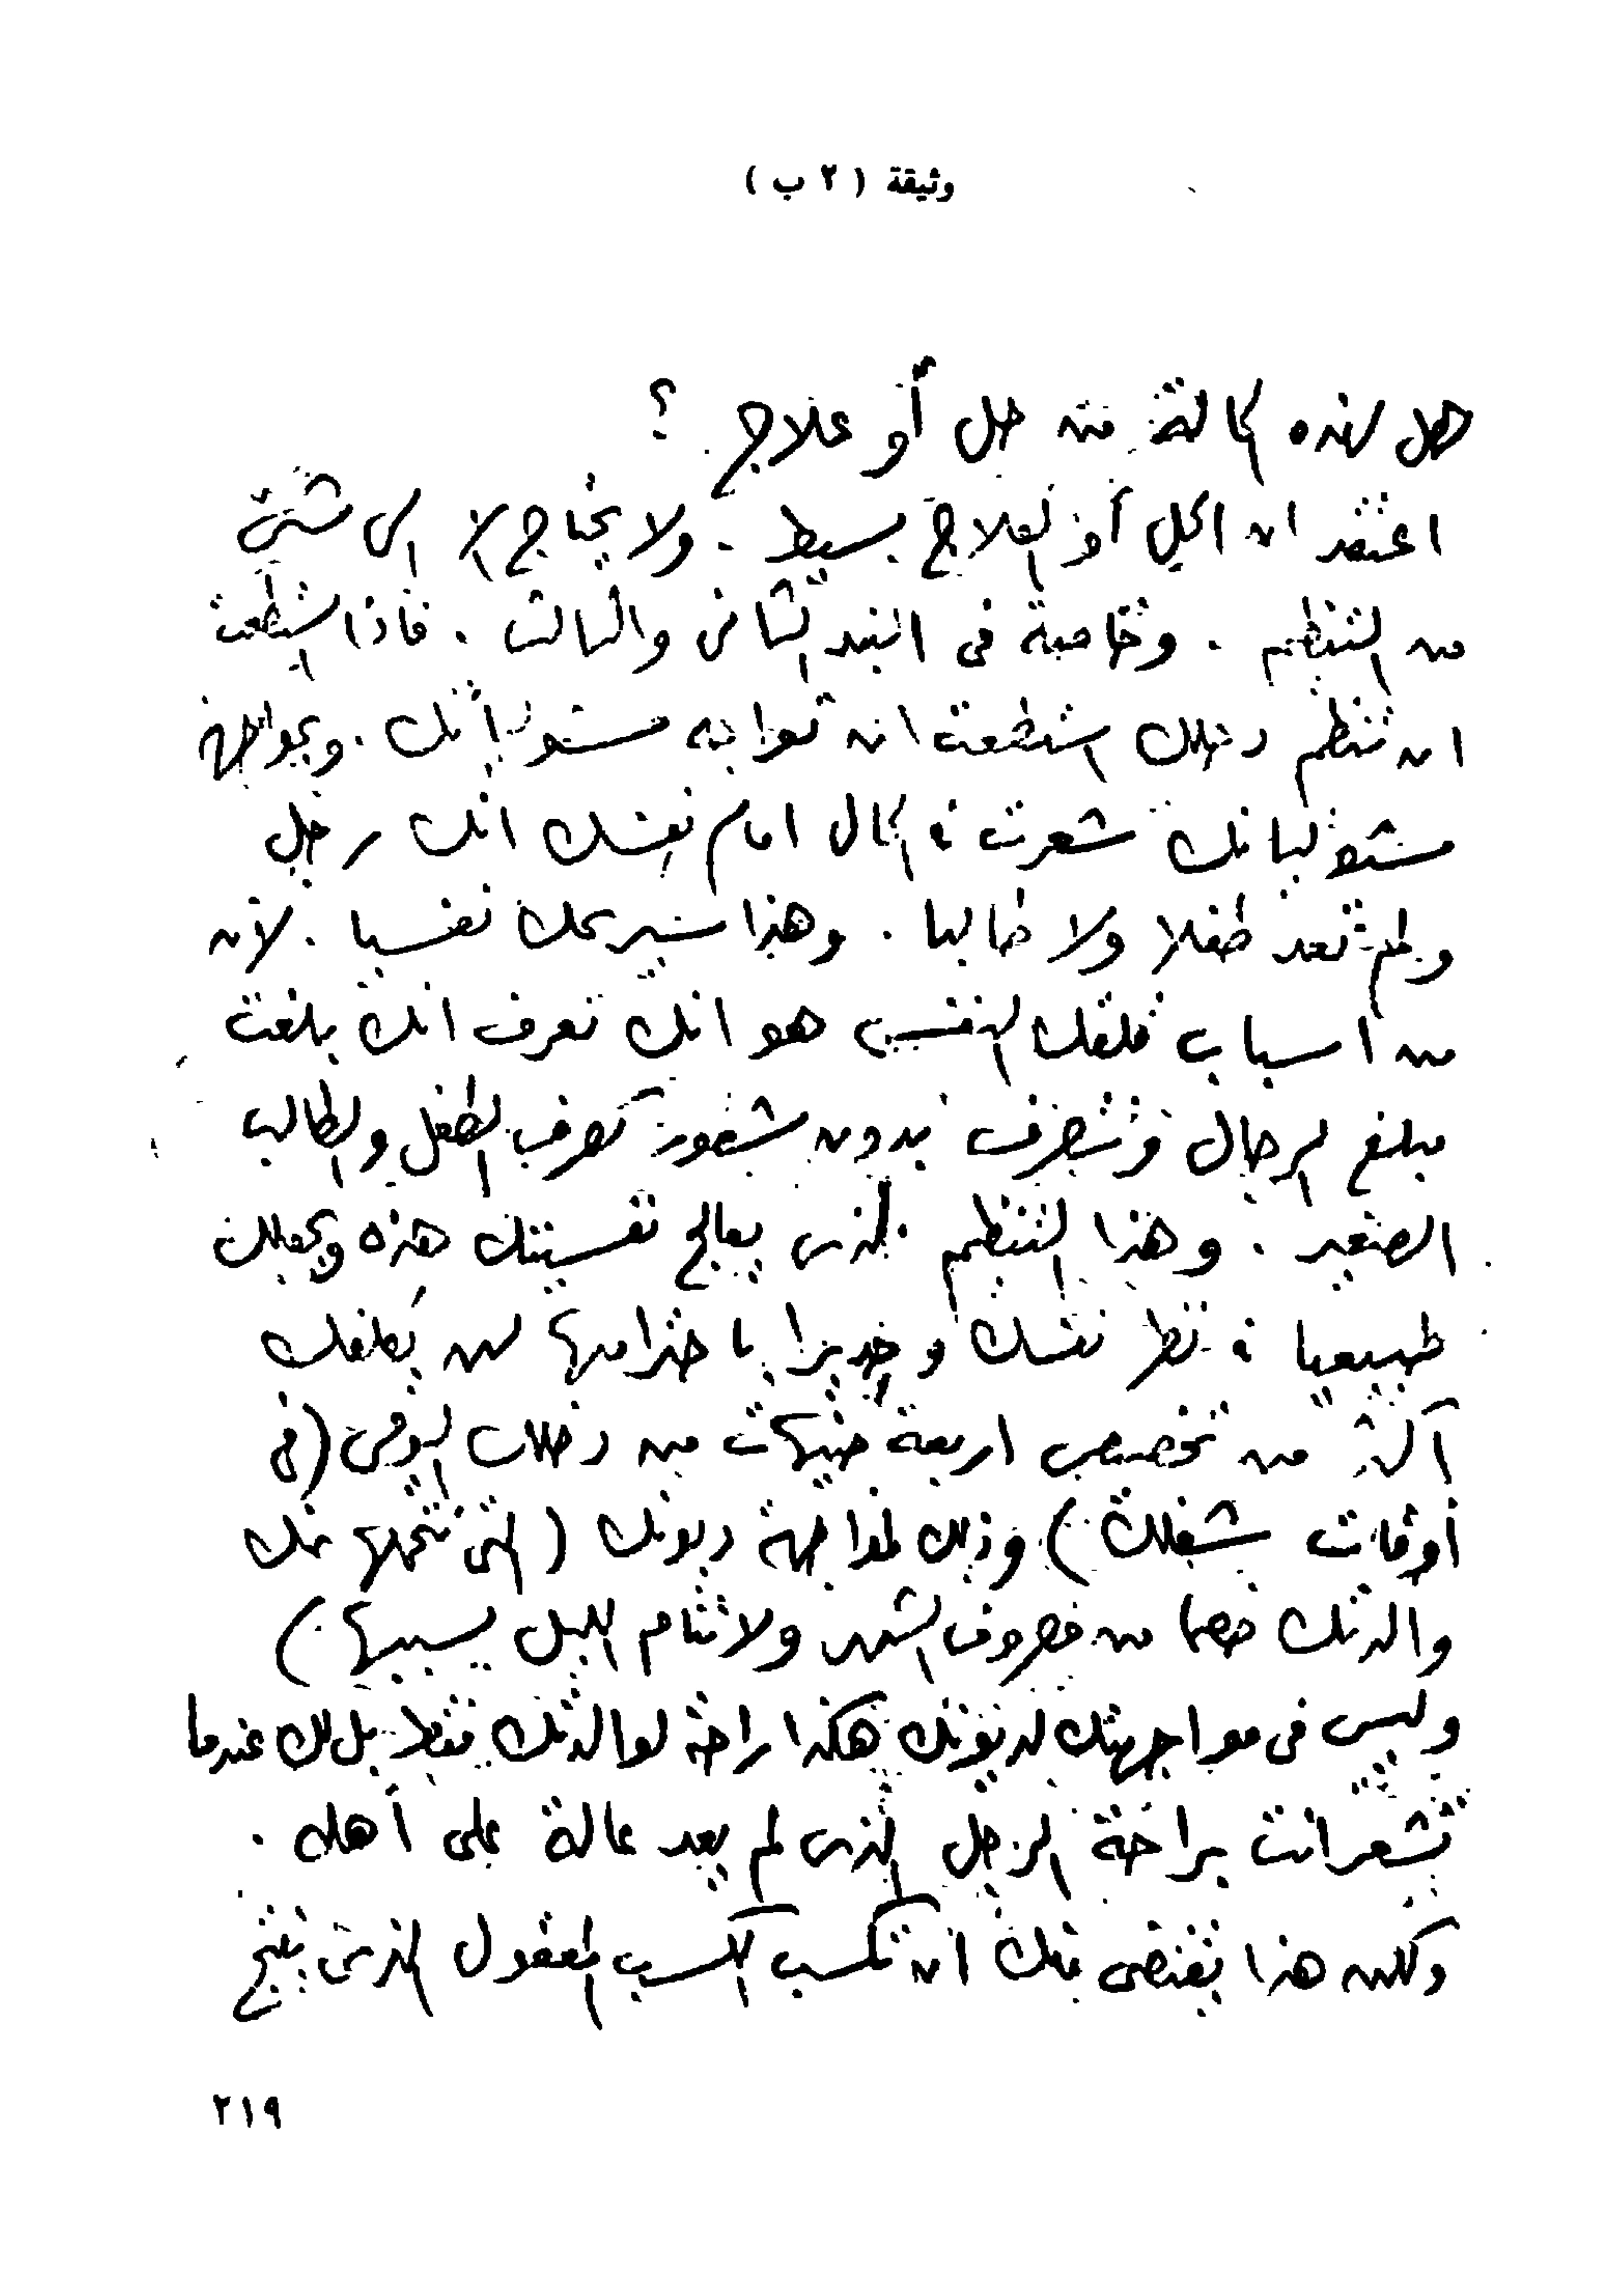 وثيقة ( ٢ ب )
هل لهذه الحالة من حل أو علاج ؟
اعتقد ان الحل أو العلاج بسيط . ولا يحتاج الا الى شئ
من التنظيم . وخاصة فى البند الثانى والثالث . فاذا استطعت
ان تنظم دخلك استطعت ان تواجه مسئولياتك . وبمواجهة
مسئولياتك شعرت فى الحال امام نفسك انك رجل
ولم تعد طفلا ولا طالبا . وهذا سيريحك نفسيا . لأن
من اسباب قلقك النفسى هو انك تعرف انك بلغت
مبلغ الرجال وتتصرف بدون شعور تصرف الطفل والطالب
الصغير . وهذا التنظيم الذى يعالج نفسيتك هذه ويجعلك
طبيعيا فى نظر نفسك وجديرا باحترامها لن يكلفك
أكثر من تخصيص اربعة جنيهات من دخلك اليومى ( فى
أوقات شغلك ) وذلك لمواجهة ديونك ( التى تتحملها عنك
والدتك خصما من مصروف الشهر ولا تنام الليل بسببها )
وليس فى مواجهتك لديونك هكذا راحة لوالدتك فقط بل لك عندما
تشعر انت براحة الرجل الذى لم يعد عالة على أهله .
ولكن هذا يقتضى منك أن تكسب الكسب المعقول الذى ينتج
٢١٩